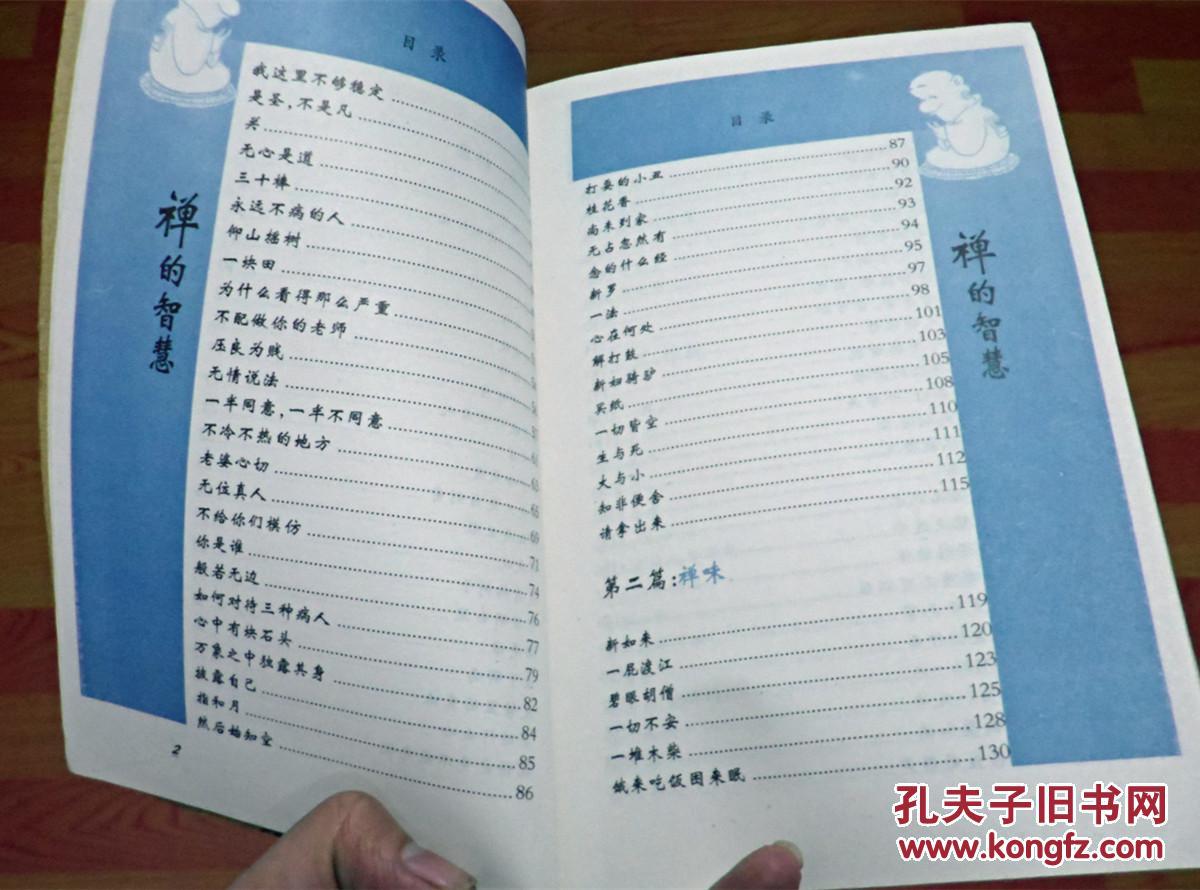 目录
我这里不够稳定
是圣，不是凡
关
无心是道
三十棒
永远不病的人
仰山摇树
一块田
为什么看得那么严重
不配做你的老师
压良为贱
无情说法
一半同意，一半不同意
不冷不热的地方
老婆心切
无位真人
不给你们模仿 69
你是谁 71
般若无边 74
如何对待三种病人 76
心中有块石头 77
万象之中独露其身 79
披露自己 82
指和月 84
然后始知空 85
86
2
禅的智慧
目录
打耍的小丑 87
桂花香 90
尚未到家 92
无占忽然有 93
念的什么经 94
新罗 95
一法 97
心在何处 98
解打鼓 101
新妇骑驴 103
买纸 105
一切皆空 108
生与死 110
大与小 111
知非便舍 112
请拿出来 115
第二篇：禅味
新如来 119
一屁渡江 120
碧眼胡僧 123
一切不安 125
一堆木柴 128
饿来吃饭困来眠 130
禅的智慧
孔夫子旧书网
www.kongfz.com